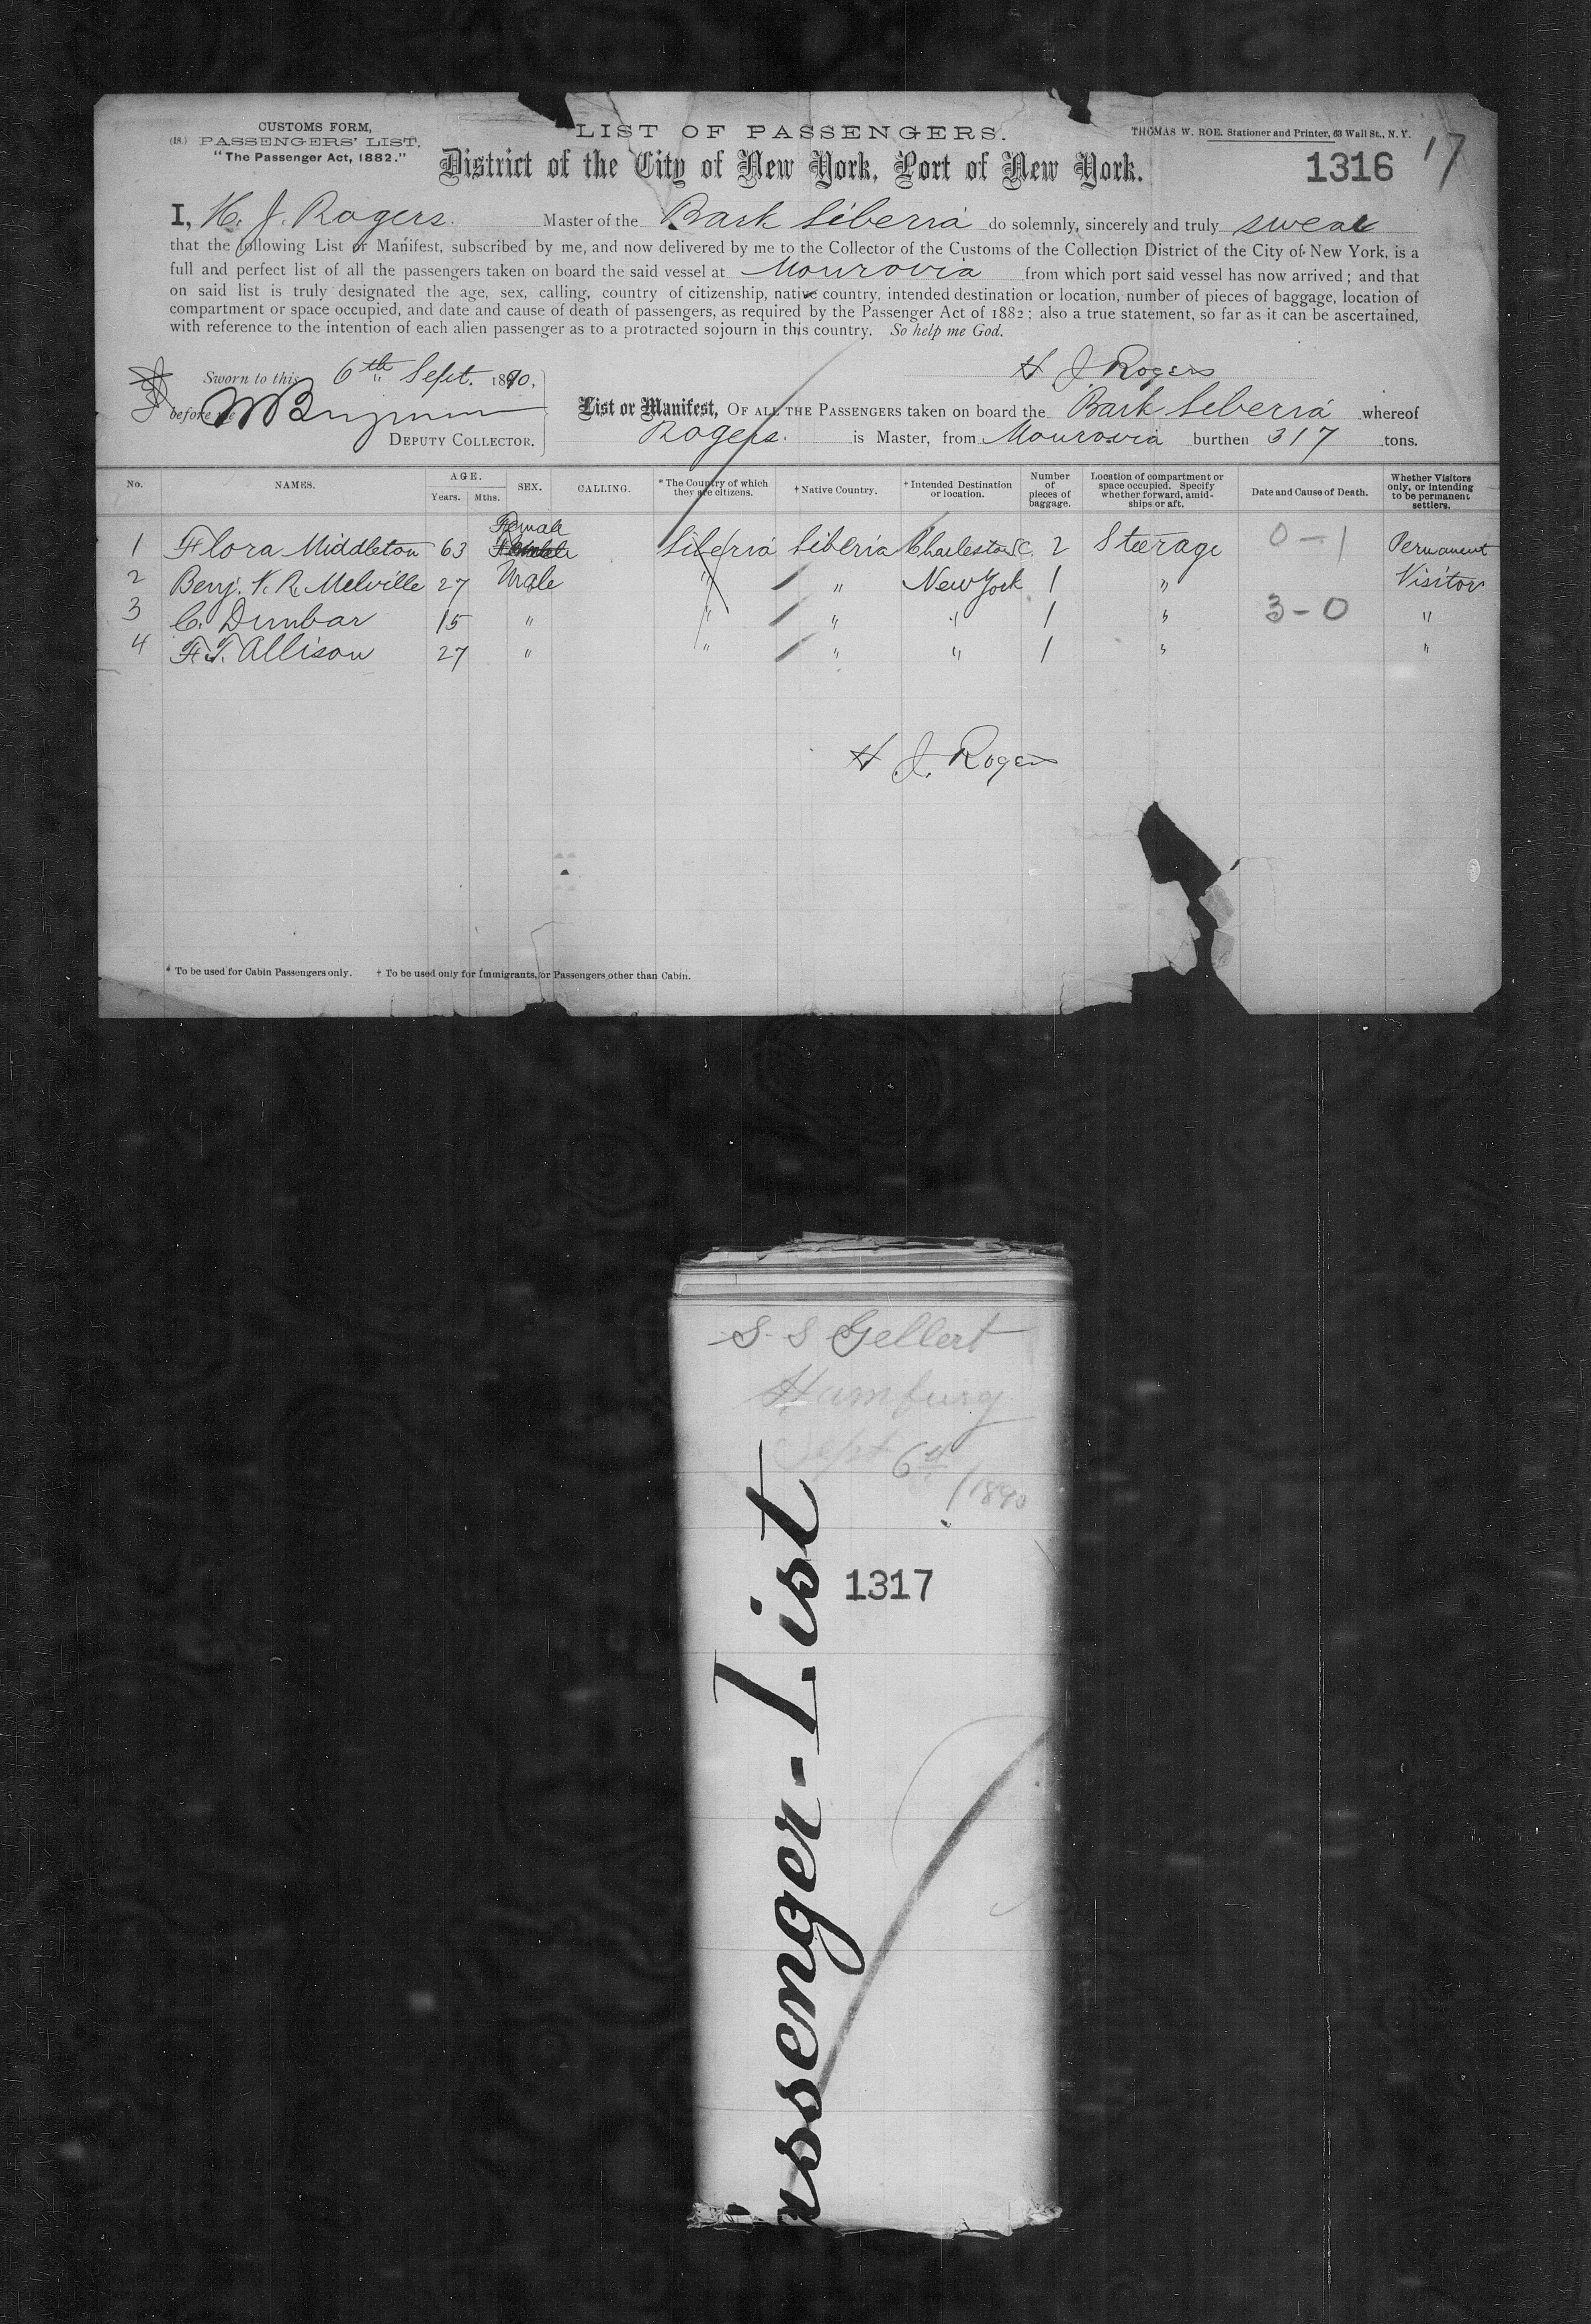 CUSTOMS FORM,
(18.) PASSENGERS' LIST.
"The Passenger Act, 1882."
LIST OF PASSENGERS.
THOMAS W. ROE. Stationer and Printer, 63 Wall St., N. Y.
District of the City of New York, Port of New York.
1316
17
I, H. J. Rogers. Master of the Bark Liberia do solemnly, sincerely and truly swear
that the following List or Manifest, subscribed by me, and now delivered by me to the Collector of the Customs of the Collection District of the City of New York, is a
full and perfect list of all the passengers taken on board the said vessel at Monrovia from which port said vessel has now arrived; and that
on said list is truly designated the age, sex, calling, country of citizenship, native country, intended destination or location, number of pieces of baggage, location of
compartment or space occupied, and date and cause of death of passengers, as required by the Passenger Act of 1882; also a true statement, so far as it can be ascertained,
with reference to the intention of each alien passenger as to a protracted sojourn in this country. So help me God.
Sworn to this 6th Sept. 1890,
H J Rogers
before me
DEPUTY COLLECTOR.
List or Manifest, OF ALL THE PASSENGERS taken on board the Bark Liberia whereof
Rogers. is Master, from Monrovia burthen 317 tons.
No. NAMES. AGE. Years. Mths. SEX. CALLING. * The Country of which they are citizens. † Native Country. † Intended Destination or location. Number of pieces of baggage. Location of compartment or space occupied. Specify whether forward, amidships or aft. Date and Cause of Death. Whether Visitors only, or intending to be permanent settlers.
1 Flora Middleton 63 Female Liberia Liberia Charleston SC. 2 Steerage 0-1 Permanent
2 Benj. V. R. Melville 27 Male " " New York 1 " Visitor
3 C. Dunbar 15 " " " " 1 " 3-0 "
4 F. T. Allison 27 " " " " 1 " "
H J. Rogers
* To be used for Cabin Passengers only. † To be used only for Immigrants, or Passengers other than Cabin.
S-S Gellert
Hamburg
Sept 6th/1890
1317
ssenger-List